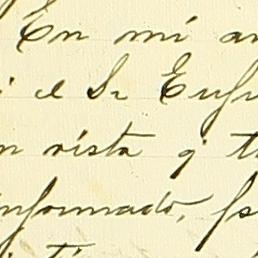 En mi an
i el Sr Eufr
n vista q t
informado,